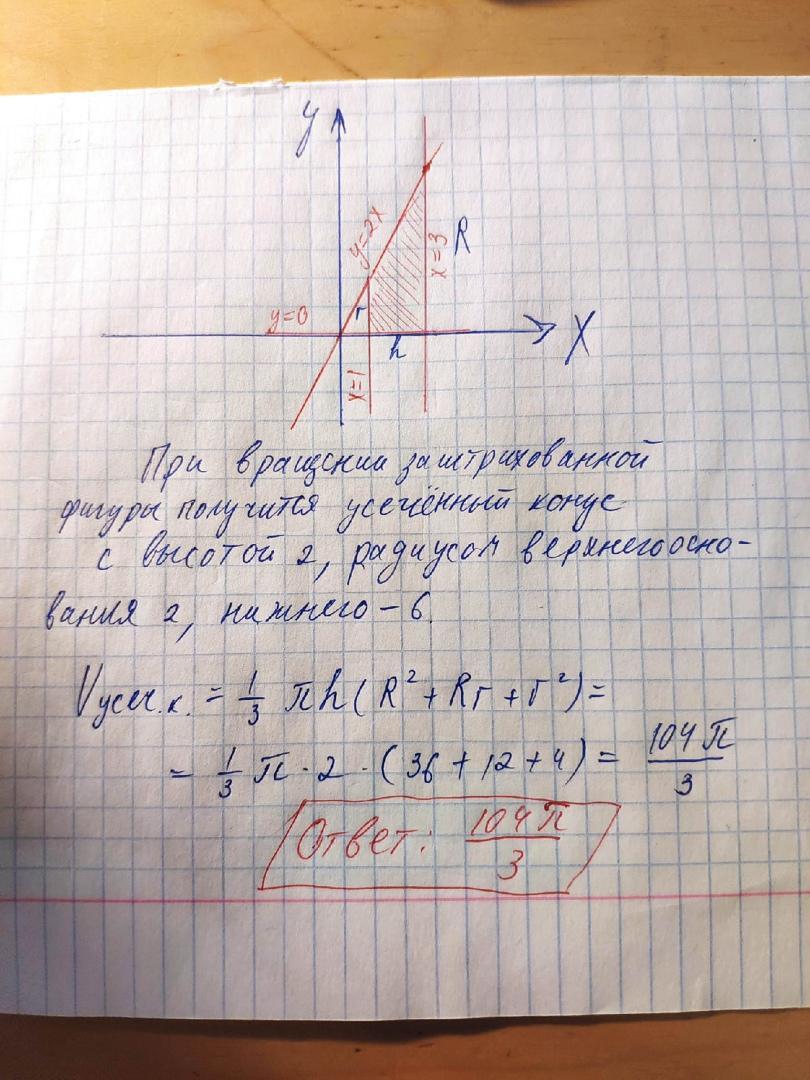 y
y=2x
R
x=3
y=0
r
h
X
x=1
При вращении заштрихованной
фигуры получится усечённый конус
с высотой 2, радиусом верхнего осно-
вания 2, нижнего – 6.
Vусеч.к. = 1/3 πh(R² + Rr + r²) =
= 1/3 π · 2 · (36 + 12 + 4) = 104π/3
Ответ: 104π/3